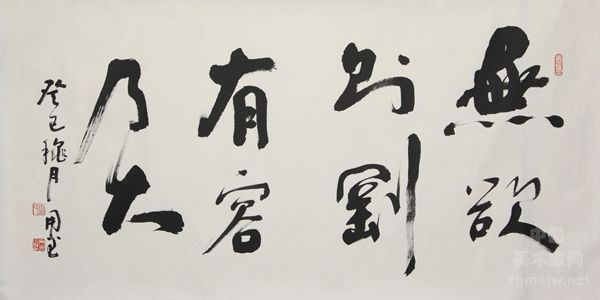 無欲
则剛
有容
乃大
癸巳穐月
中国
美术家网
zgmsjw.net